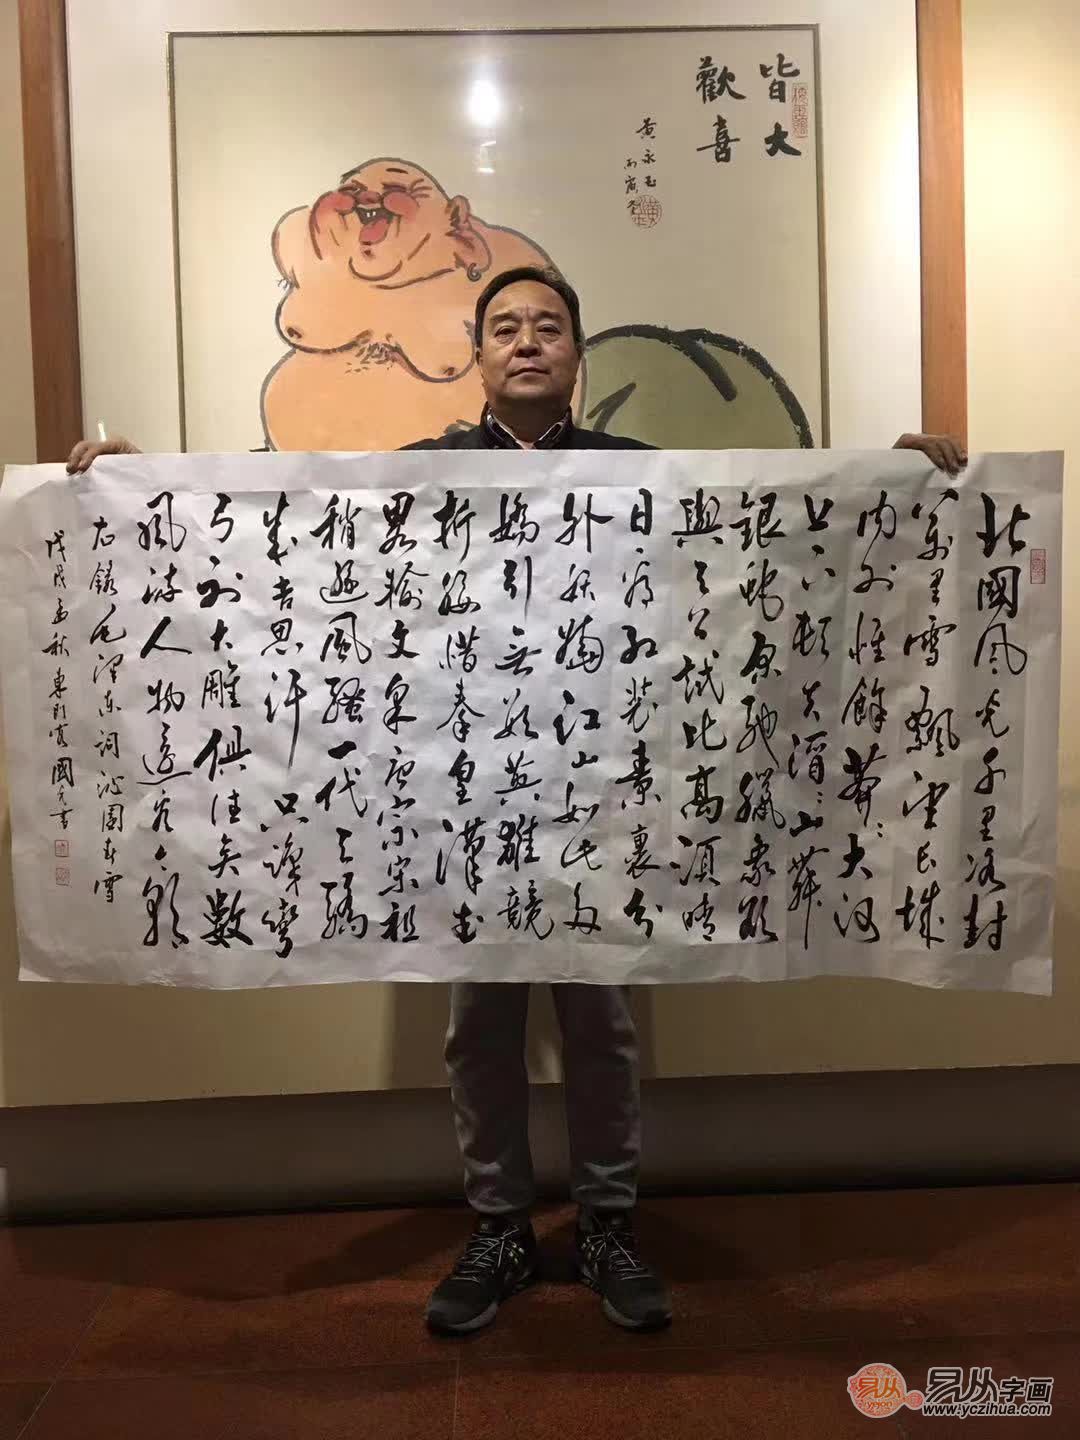 皆大
歡喜
黄永玉
丙寅冬
北國風光千里冰封
萬里雪飄望長城
內外惟餘莽〻大河
上下頓失滔〻山舞
銀蛇原馳臘象欲
與天公試比高須晴
日看紅裝素裹分
外妖嬈江山如此多
嬌引無數英雄競
折腰惜秦皇漢武
略輸文采唐宗宋祖
稍遜風騷一代天驕
成吉思汗只識彎
弓射大雕俱往矣數
風流人物還看今朝
右錄毛澤東詞沁園春雪
戊戌孟秋東明國書
易从字画
www.yczihua.com